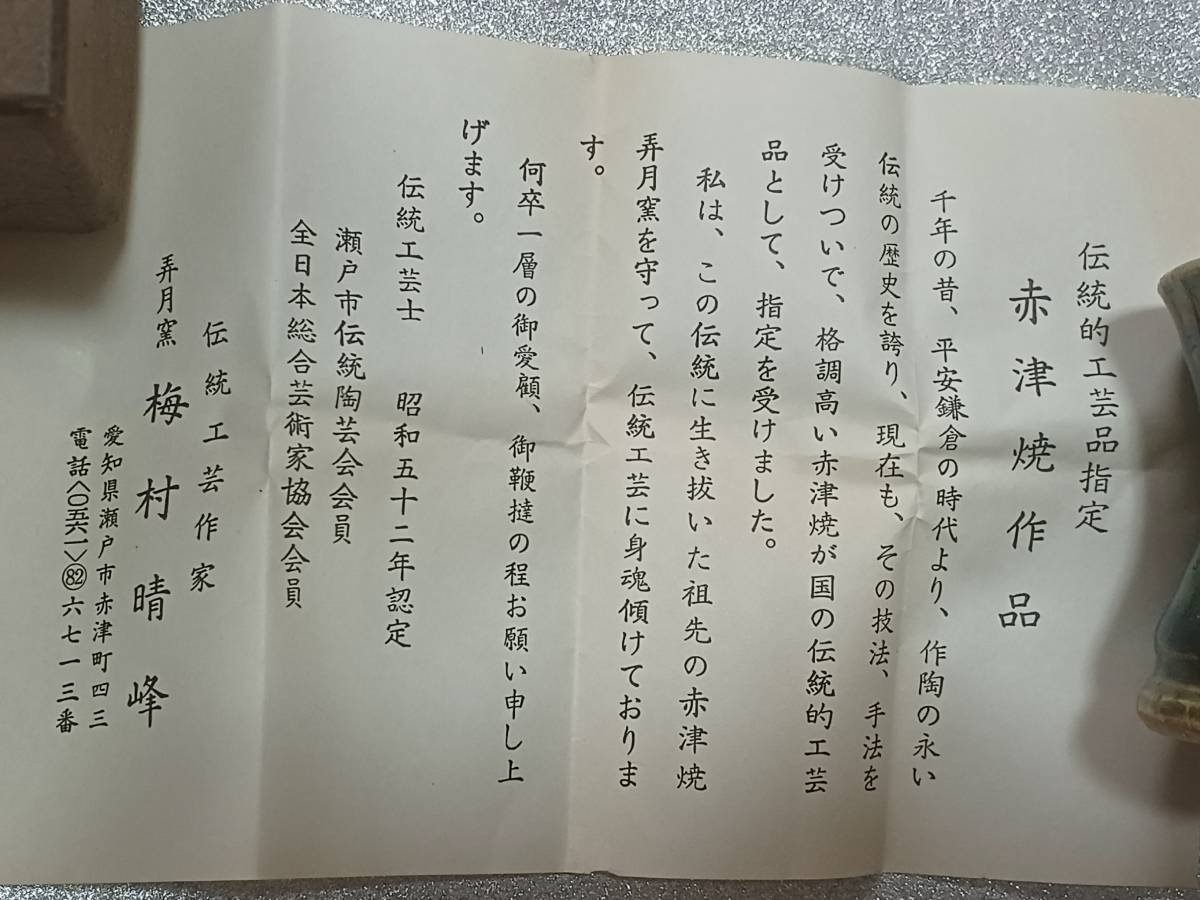 伝統的工芸品指定
赤津焼作品
千年の昔、平安鎌倉の時代より、作陶の永い
伝統の歴史を誇り、現在も、その技法、手法を
受けついで、格調高い赤津焼が国の伝統的工芸
品として、指定を受けました。
私は、この伝統に生き抜いた祖先の赤津焼
弄月窯を守って、伝統工芸に身魂傾けておりま
す。
何卒一層の御愛顧、御鞭撻の程お願い申し上
げます。
伝統工芸士　昭和五十二年認定
瀬戸市伝統陶芸会会員
全日本総合芸術家協会会員
伝統工芸作家
弄月窯　梅村晴峰
愛知県瀬戸市赤津町四三
電話〈〇五六一〉㉘六七一三番